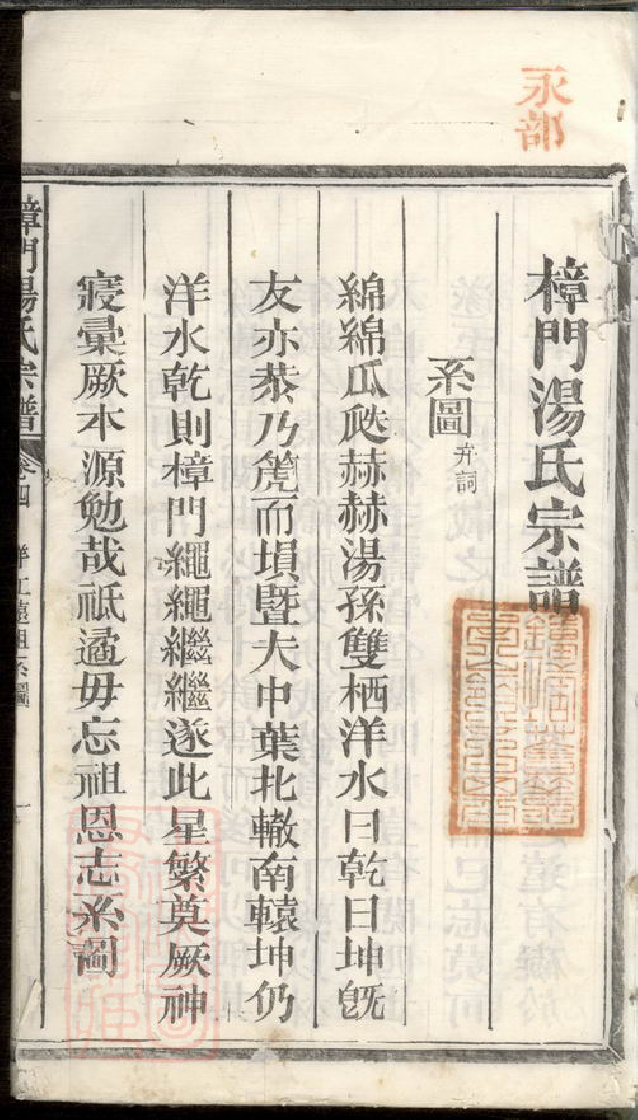 永部
樟門湯氏宗譜
系圖 弁詞
綿綿瓜瓞赫赫湯孫雙栖洋水曰乾曰坤旣
友亦恭乃篪而塤暨夫中葉北轍南轅坤仍
洋水乾則樟門繩繩繼繼遂此星繁莫厥神
寢彚厥本源勉哉祗遹毋忘祖恩志系圖
樟門湯氏宗譜 卷四 洋江遠祖系圖 一